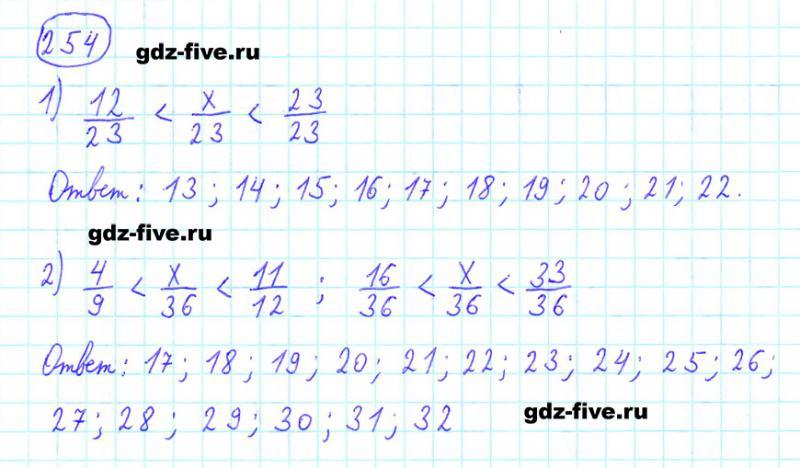 254
gdz-five.ru
1) 12/23 < x/23 < 23/23
gdz-five.ru
Ответ: 13; 14; 15; 16; 17; 18; 19; 20; 21; 22.
gdz-five.ru
2) 4/9 < x/36 < 11/12 ; 16/36 < x/36 < 33/36
Ответ: 17; 18; 19; 20; 21; 22; 23; 24; 25; 26;
27; 28; 29; 30; 31; 32
gdz-five.ru